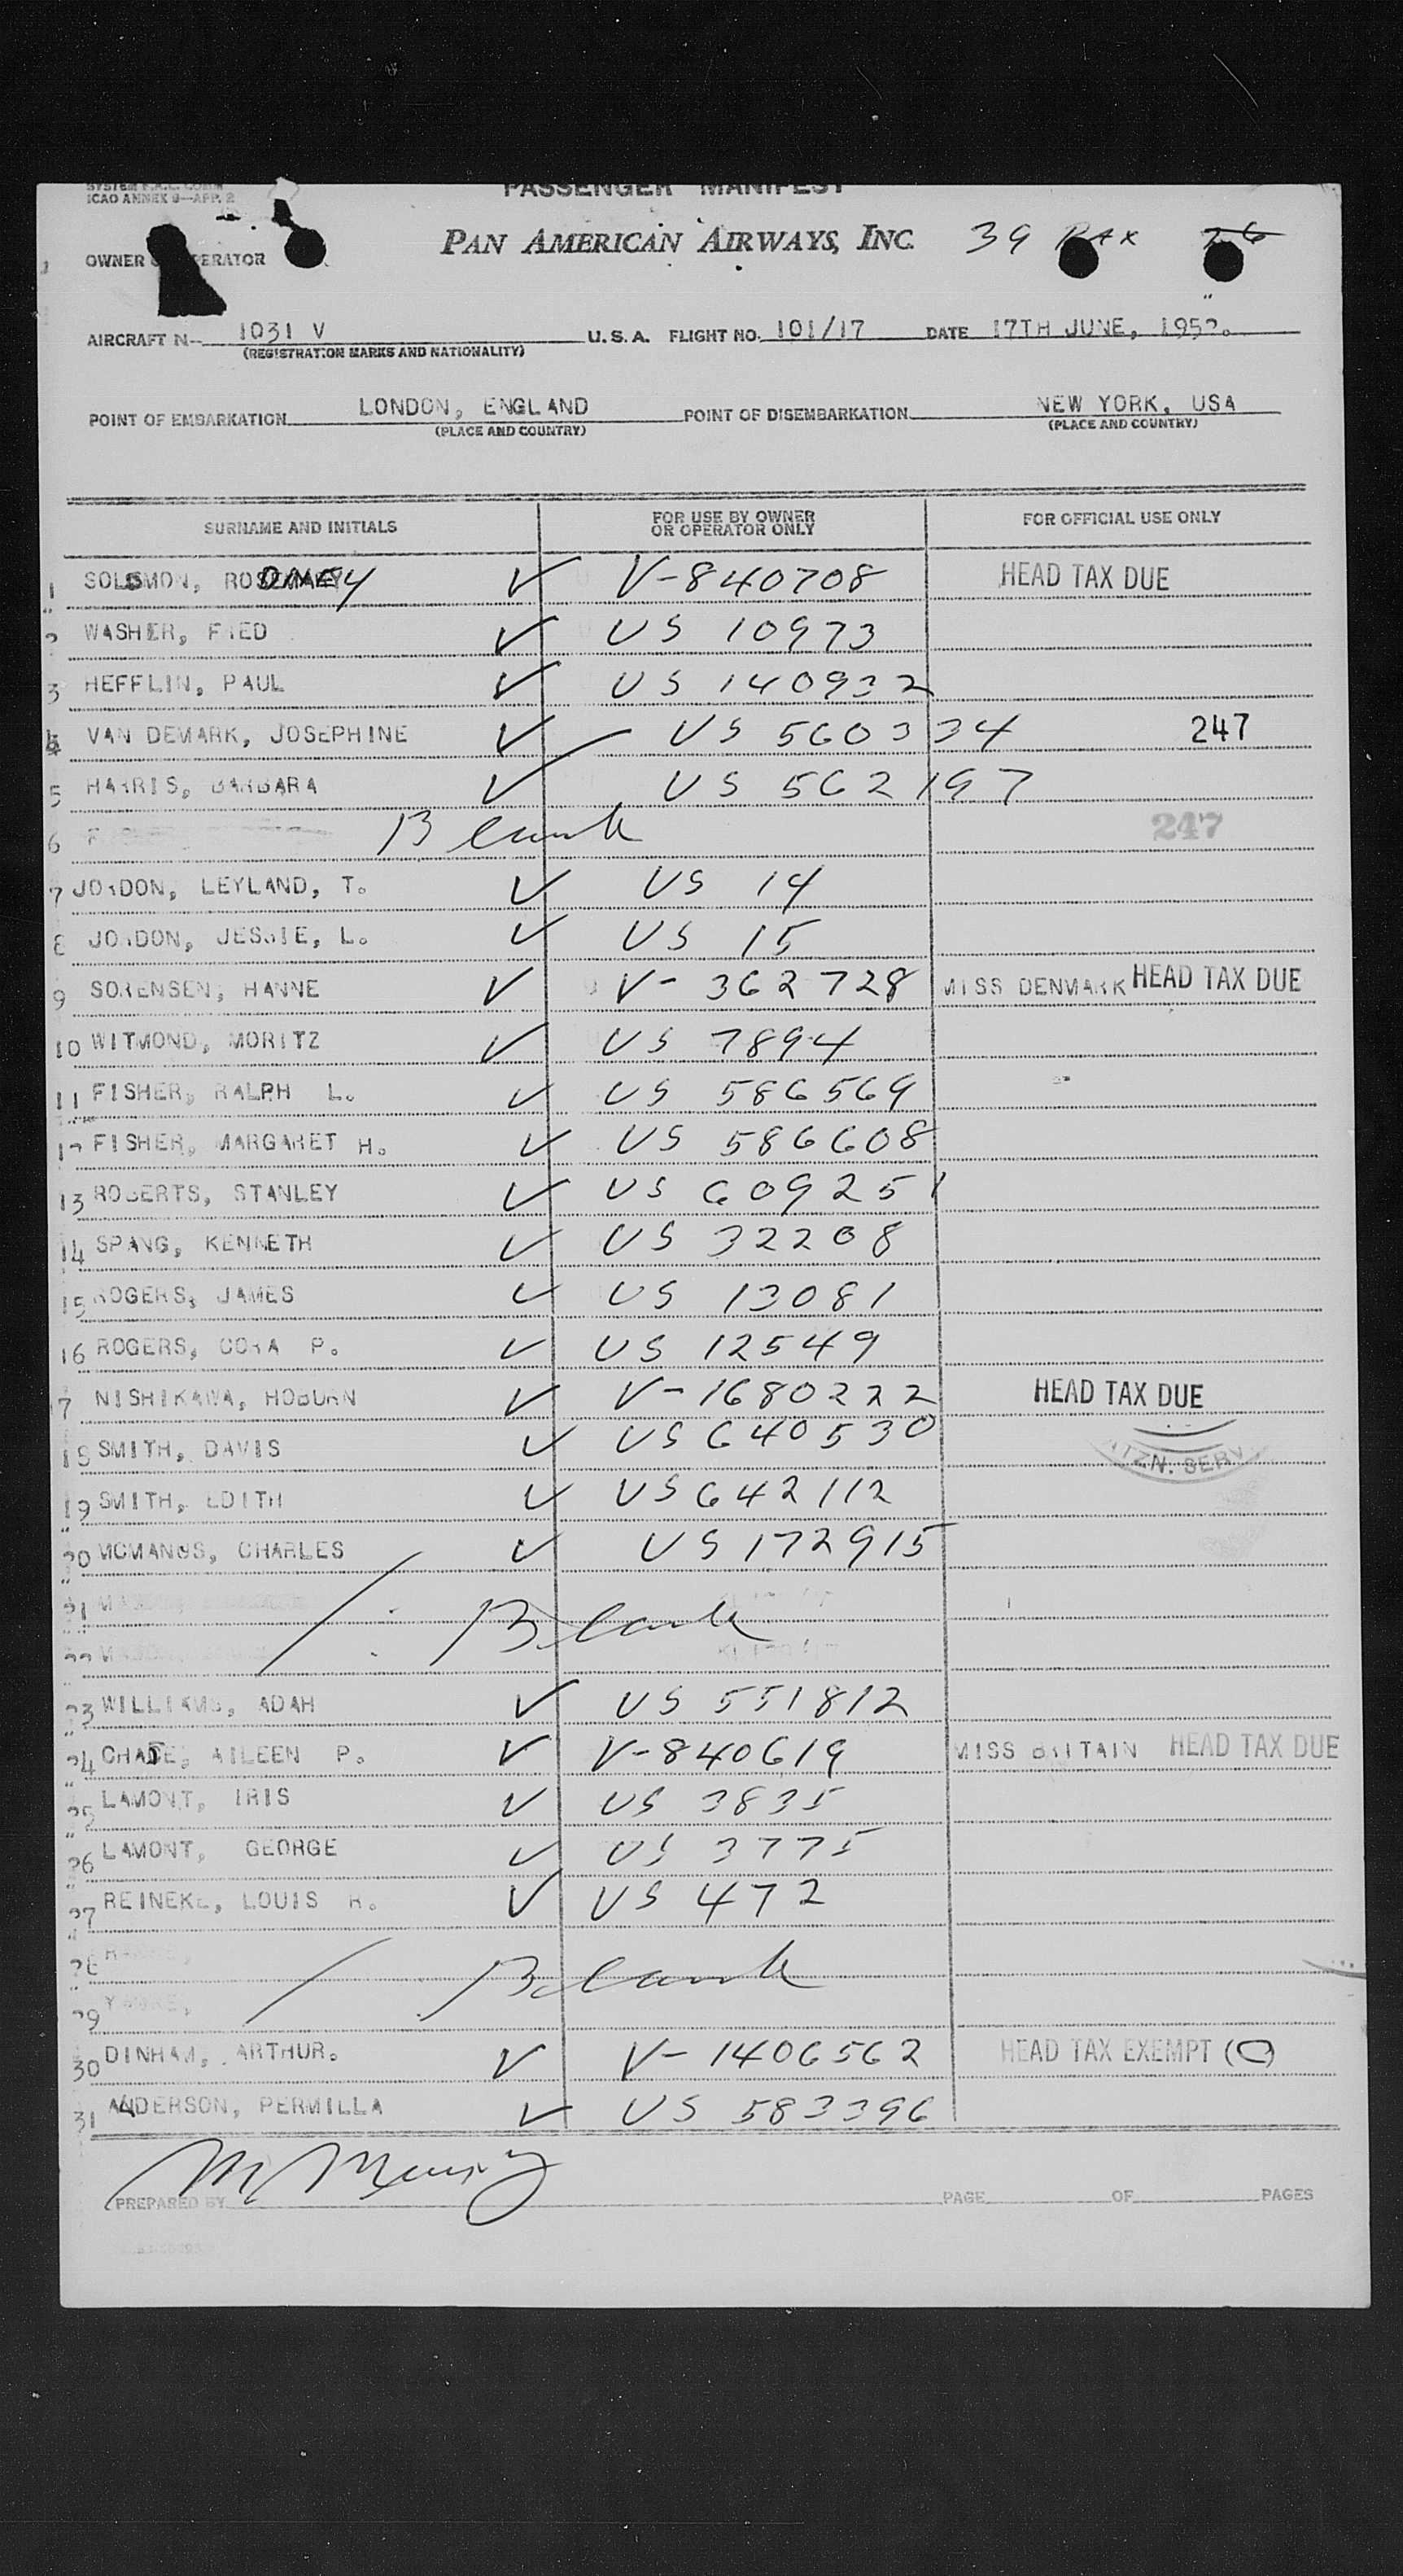 ICAO ANNEX 9—APP. 2
PASSENGER MANIFEST
PAN AMERICAN AIRWAYS, INC. 39 PAX 26
OWNER OPERATOR
AIRCRAFT N-- 1031 V U.S.A. FLIGHT NO. 101/17 DATE 17TH JUNE, 1952.
(REGISTRATION MARKS AND NATIONALITY)
POINT OF EMBARKATION LONDON, ENGLAND POINT OF DISEMBARKATION NEW YORK, USA
(PLACE AND COUNTRY) (PLACE AND COUNTRY)
SURNAME AND INITIALS FOR USE BY OWNER OR OPERATOR ONLY FOR OFFICIAL USE ONLY
1 SOLOMON, V-840708 HEAD TAX DUE
2 WASHER, FRED US 10973
3 HEFFLIN, PAUL US 140932
4 VAN DEMARK, JOSEPHINE US 560334 247
5 HARRIS, BARBARA US 562197
6 Blank 247
7 JORDON, LEYLAND, T. US 14
8 JORDON, JESSIE, L. US 15
9 SORENSEN, HANNE V-362728 MISS DENMARK HEAD TAX DUE
10 WITMOND, MORITZ US 7894
11 FISHER, RALPH L. US 586569
12 FISHER, MARGARET H. US 586608
13 ROBERTS, STANLEY US 609251
14 SPANG, KENNETH US 32208
15 ROGERS, JAMES US 13081
16 ROGERS, CORA P. US 12549
17 NISHIKAWA, HOBURN V-1680222 HEAD TAX DUE
18 SMITH, DAVIS US 640530
19 SMITH, EDITH US 642112
20 MCMANUS, CHARLES US 172915
21 Blank
22
23 WILLIAMS, ADAH US 551812
24 CHASE, AILEEN P. V-840619 MISS BRITAIN HEAD TAX DUE
25 LAMONT, IRIS US 3835
26 LAMONT, GEORGE US 3775
27 REINEKE, LOUIS R. US 472
28 Blank
29
30 DINHAM, ARTHUR. V-1406562 HEAD TAX EXEMPT (C)
31 ANDERSON, PERMILLA US 583396
PREPARED BY PAGE OF PAGES